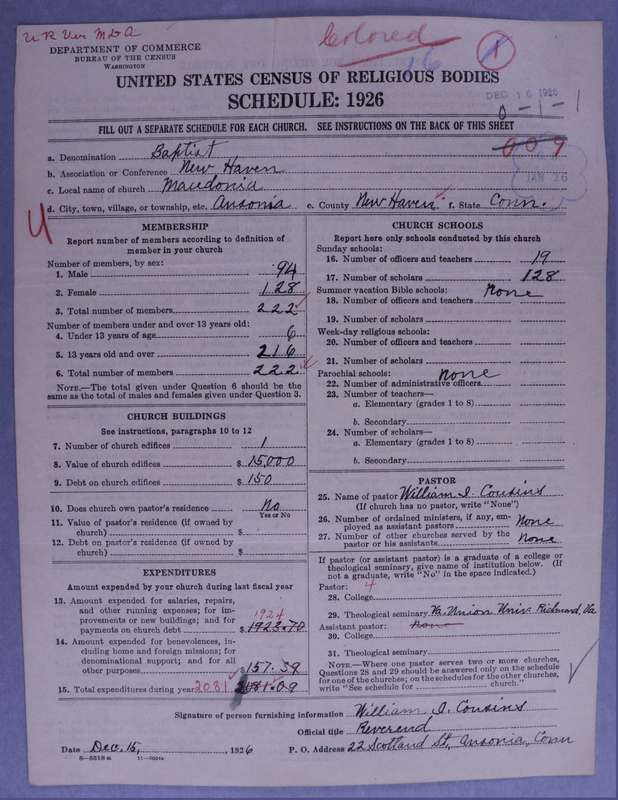 U R Ver M D A
Colored
16
1
DEPARTMENT OF COMMERCE
BUREAU OF THE CENSUS
WASHINGTON
UNITED STATES CENSUS OF RELIGIOUS BODIES
SCHEDULE: 1926
DEC 16 1926
0-1-1
FILL OUT A SEPARATE SCHEDULE FOR EACH CHURCH. SEE INSTRUCTIONS ON THE BACK OF THIS SHEET
009
JAN 26
a. Denomination Baptist
b. Association or Conference New Haven
c. Local name of church Macedonia
d. City, town, village, or township, etc. Ansonia e. County New Haven f. State Conn.
MEMBERSHIP
Report number of members according to definition of
member in your church
Number of members, by sex:
1. Male 94
2. Female 128
3. Total number of members 222
Number of members under and over 13 years old:
4. Under 13 years of age 6
5. 13 years old and over 216
6. Total number of members 222
NOTE.—The total given under Question 6 should be the
same as the total of males and females given under Question 3.
CHURCH BUILDINGS
See instructions, paragraphs 10 to 12
7. Number of church edifices 1
8. Value of church edifices $ 15,000
9. Debt on church edifices $ 150
10. Does church own pastor's residence No
Yes or No
11. Value of pastor's residence (if owned by
church) $
12. Debt on pastor's residence (if owned by
church) $
EXPENDITURES
Amount expended by your church during last fiscal year
13. Amount expended for salaries, repairs,
and other running expenses; for im-
provements or new buildings; and for
payments on church debt $ 1923.70
1924
14. Amount expended for benevolences, in-
cluding home and foreign missions; for
denominational support; and for all
other purposes $ 157.39
15. Total expenditures during year 2081 2081.09
CHURCH SCHOOLS
Report here only schools conducted by this church
Sunday schools:
16. Number of officers and teachers 19
17. Number of scholars 128
Summer vacation Bible schools: None
18. Number of officers and teachers
19. Number of scholars
Week-day religious schools:
20. Number of officers and teachers
21. Number of scholars
Parochial schools: None
22. Number of administrative officers
23. Number of teachers—
a. Elementary (grades 1 to 8)
b. Secondary
24. Number of scholars—
a. Elementary (grades 1 to 8)
b. Secondary
PASTOR
25. Name of pastor William I. Cousins
(If church has no pastor, write "None")
26. Number of ordained ministers, if any, em-
ployed as assistant pastors None
27. Number of other churches served by the
pastor or his assistants None
If pastor (or assistant pastor) is a graduate of a college or
theological seminary, give name of institution below. (If
not a graduate, write "No" in the space indicated.)
Pastor: 4
28. College
29. Theological seminary Va. Union Univ. Richmond, Va
Assistant pastor: None
30. College
31. Theological seminary
NOTE.—Where one pastor serves two or more churches,
Questions 28 and 29 should be answered only on the schedule
for one of the churches; on the schedules for the other churches,
write "See schedule for church."
Signature of person furnishing information William I. Cousins
Official title Reverend
Date Dec. 15, 1926 P. O. Address 22 Scotland St, Ansonia, Conn
8-5518a 11-9054a